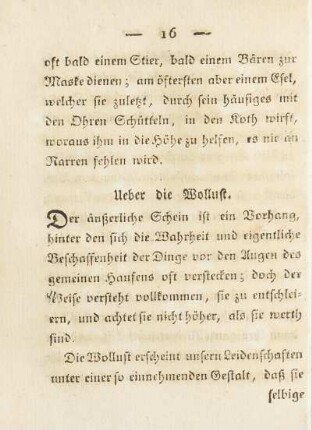 — 16 —
oft bald einem Stier, bald einem Bären zur
Maske dienen; am öftersten aber einem Esel,
welcher sie zuletzt, durch sein häufiges mit
den Ohren Schütteln, in den Koth wirft,
woraus ihm in die Höhe zu helfen, es nie an
Narren fehlen wird.
Ueber die Wollust.
Der äußerliche Schein ist ein Vorhang,
hinter den sich die Wahrheit und eigentliche
Beschaffenheit der Dinge vor den Augen des
gemeinen Haufens oft verstecken; doch der
Weise versteht vollkommen, sie zu entschlei-
ern, und achtet sie nicht höher, als sie werth
sind.
Die Wollust erscheint unsern Leidenschaften
unter einer so einnehmenden Gestalt, daß sie
selbige